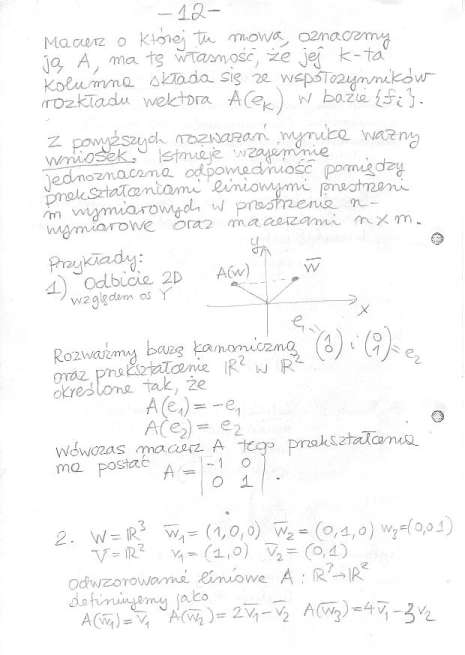 -12-
Macierz o której tu mowa, oznaczmy
ją A, ma tę własność, że jej k-ta
kolumna składa się ze współczynników
rozkładu wektora A(e_k) w bazie {f_i}.
Z powyższych rozważań wynika ważny
wniosek. Istnieje wzajemnie
jednoznaczna odpowiedniość pomiędzy
przekształceniami liniowymi przestrzeni
m wymiarowych w przestrzenie n-
wymiarowe oraz macierzami n×m.
Przykłady:
1) Odbicie 2D
względem oś Y
y
A(w) w̅
x
Rozważmy bazę kanoniczną e₁ = (1 0) i (0 1) = e₂
oraz przekształcenie ℝ² w ℝ²
określone tak, że
A(e₁) = -e₁
A(e₂) = e₂
Wówczas macierz A tego przekształcenia
ma postać A = |-1 0
0 1| .
2. W = ℝ³ w̅₁ = (1,0,0) w̅₂ = (0,1,0) w₃ = (0,0,1)
V = ℝ² v₁ = (1,0) v̅₂ = (0,1)
odwzorowanie liniowe A : ℝ³→ℝ²
definiujemy jako
A(w̅₁) = v̅₁ A(w̅₂) = 2v̅₁ - v̅₂ A(w̅₃) = 4v̅₁ - 3v₂